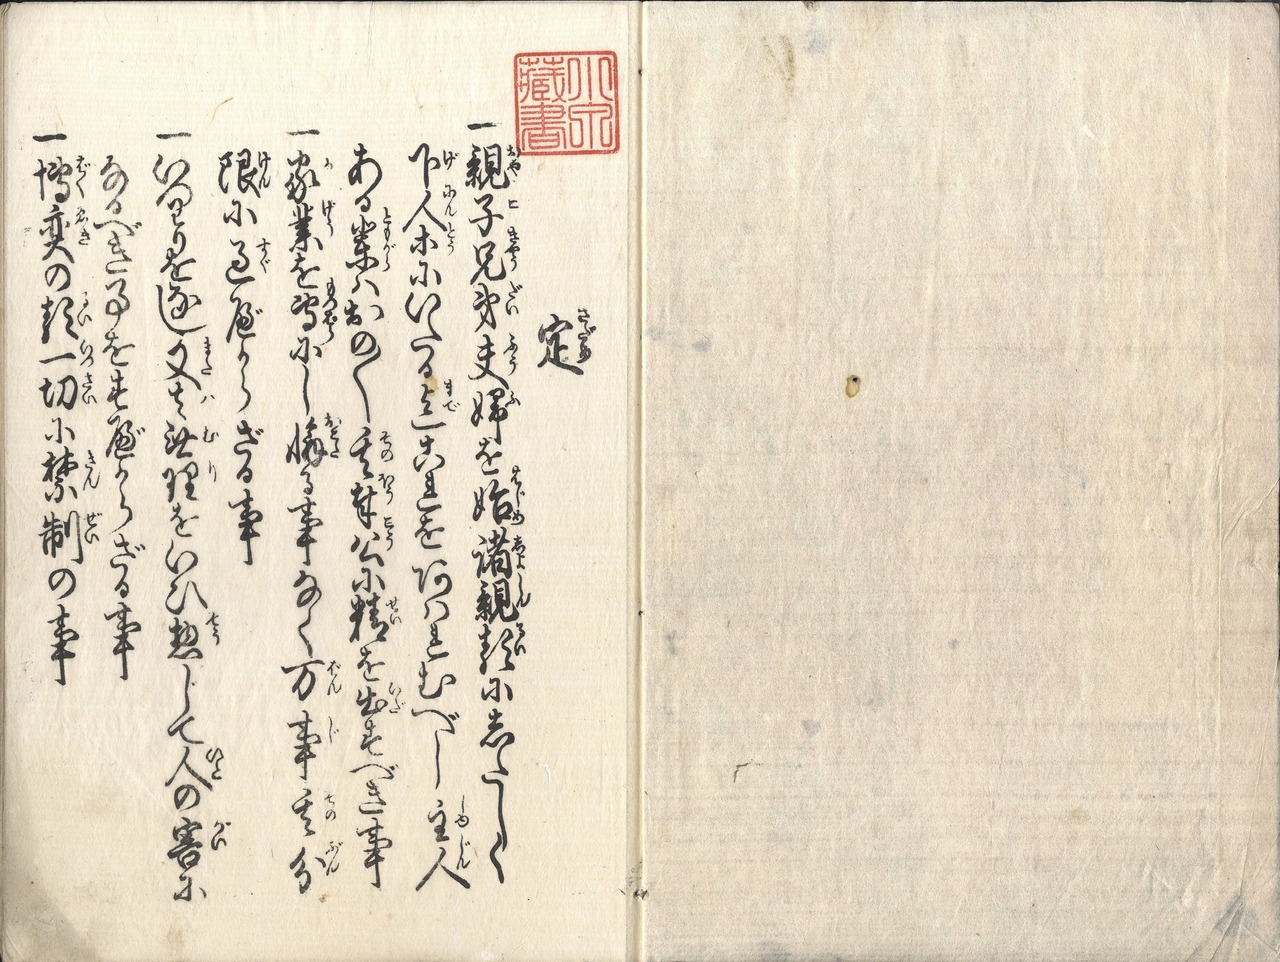 定
一親子兄弟夫婦を始諸親類にしたしく
下人等にいたる迄これをあはれむべし主人
ある輩はおの〳〵其奉公に精を出すべき事
一家業を専にし懈る事なく万事其分
限に過べからざる事
一いつはりをなし又は無理をいひ惣じて人の害に
なるべき事をすべからざる事
一博奕の類一切に禁制の事
小田
蔵書